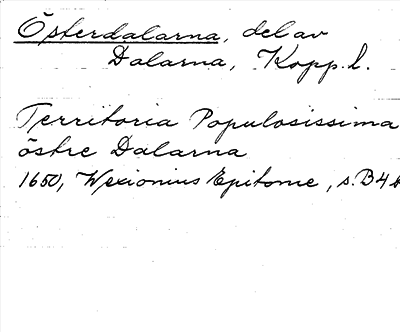 Österdalarna, del av
Dalarna, Kopp. l.
Territoria Populosissima
östre Dalarna
1650, Wexionius Epitome, s. B4